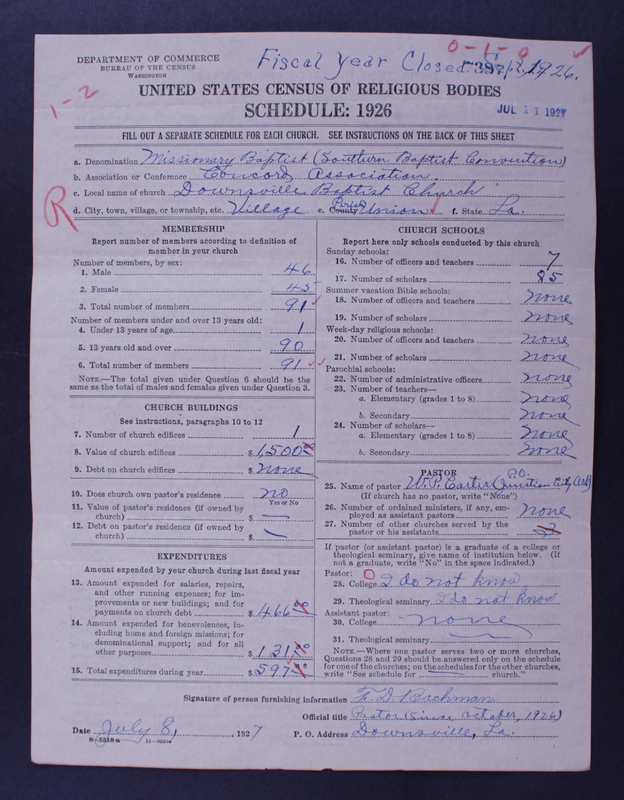 DEPARTMENT OF COMMERCE
BUREAU OF THE CENSUS
WASHINGTON
0-1-0
Fiscal year Closed Sept, 1926.
1-2
UNITED STATES CENSUS OF RELIGIOUS BODIES
SCHEDULE: 1926
JUL 11 1927
FILL OUT A SEPARATE SCHEDULE FOR EACH CHURCH. SEE INSTRUCTIONS ON THE BACK OF THIS SHEET
a. Denomination Missionary Baptist (Southern Baptist Convention)
b. Association or Conference Concord Association.
c. Local name of church Downsville Baptist Church
R
d. City, town, village, or township, etc. Village e. County Parish Union f. State La.
MEMBERSHIP
Report number of members according to definition of
member in your church
Number of members, by sex:
1. Male 46
2. Female 45
3. Total number of members 91
Number of members under and over 13 years old:
4. Under 13 years of age 1
5. 13 years old and over 90
6. Total number of members 91
NOTE.—The total given under Question 6 should be the
same as the total of males and females given under Question 3.
CHURCH BUILDINGS
See instructions, paragraphs 10 to 12
7. Number of church edifices 1
8. Value of church edifices $ 1,500.00
9. Debt on church edifices $ none
10. Does church own pastor's residence no
Yes or No
11. Value of pastor's residence (if owned by
church) $ —
12. Debt on pastor's residence (if owned by
church) $ —
EXPENDITURES
Amount expended by your church during last fiscal year
13. Amount expended for salaries, repairs,
and other running expenses; for im-
provements or new buildings; and for
payments on church debt $ 466.00
14. Amount expended for benevolences, in-
cluding home and foreign missions; for
denominational support; and for all
other purposes $ 131.00
15. Total expenditures during year $ 597.00
CHURCH SCHOOLS
Report here only schools conducted by this church
Sunday schools:
16. Number of officers and teachers 7
17. Number of scholars 85
Summer vacation Bible schools:
18. Number of officers and teachers none
19. Number of scholars none
Week-day religious schools:
20. Number of officers and teachers none
21. Number of scholars none
Parochial schools:
22. Number of administrative officers none
23. Number of teachers—
a. Elementary (grades 1 to 8) none
b. Secondary none
24. Number of scholars—
a. Elementary (grades 1 to 8) none
b. Secondary none
PASTOR
P.O.
25. Name of pastor W. P. Carter (Junction City Ark)
(If church has no pastor, write "None")
26. Number of ordained ministers, if any, em-
ployed as assistant pastors none
27. Number of other churches served by the
pastor or his assistants 3
If pastor (or assistant pastor) is a graduate of a college or
theological seminary, give name of institution below. (If
not a graduate, write "No" in the space indicated.)
Pastor: O
28. College I do not know
29. Theological seminary I do not know
Assistant pastor:
30. College none
31. Theological seminary —
NOTE.—Where one pastor serves two or more churches,
Questions 28 and 29 should be answered only on the schedule
for one of the churches; on the schedules for the other churches,
write "See schedule for church."
Signature of person furnishing information Bachman
Official title Pastor (Since October, 1926)
Date July 8, , 1927 P. O. Address Downsville, La.